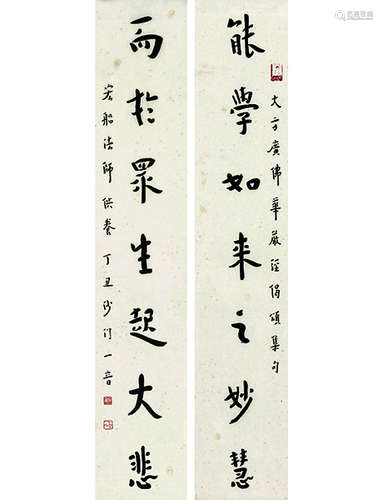 能學如来之妙慧
大方廣佛華嚴經偈頌集句
而於眾生起大悲
岩船法師供養 丁丑沙門一音